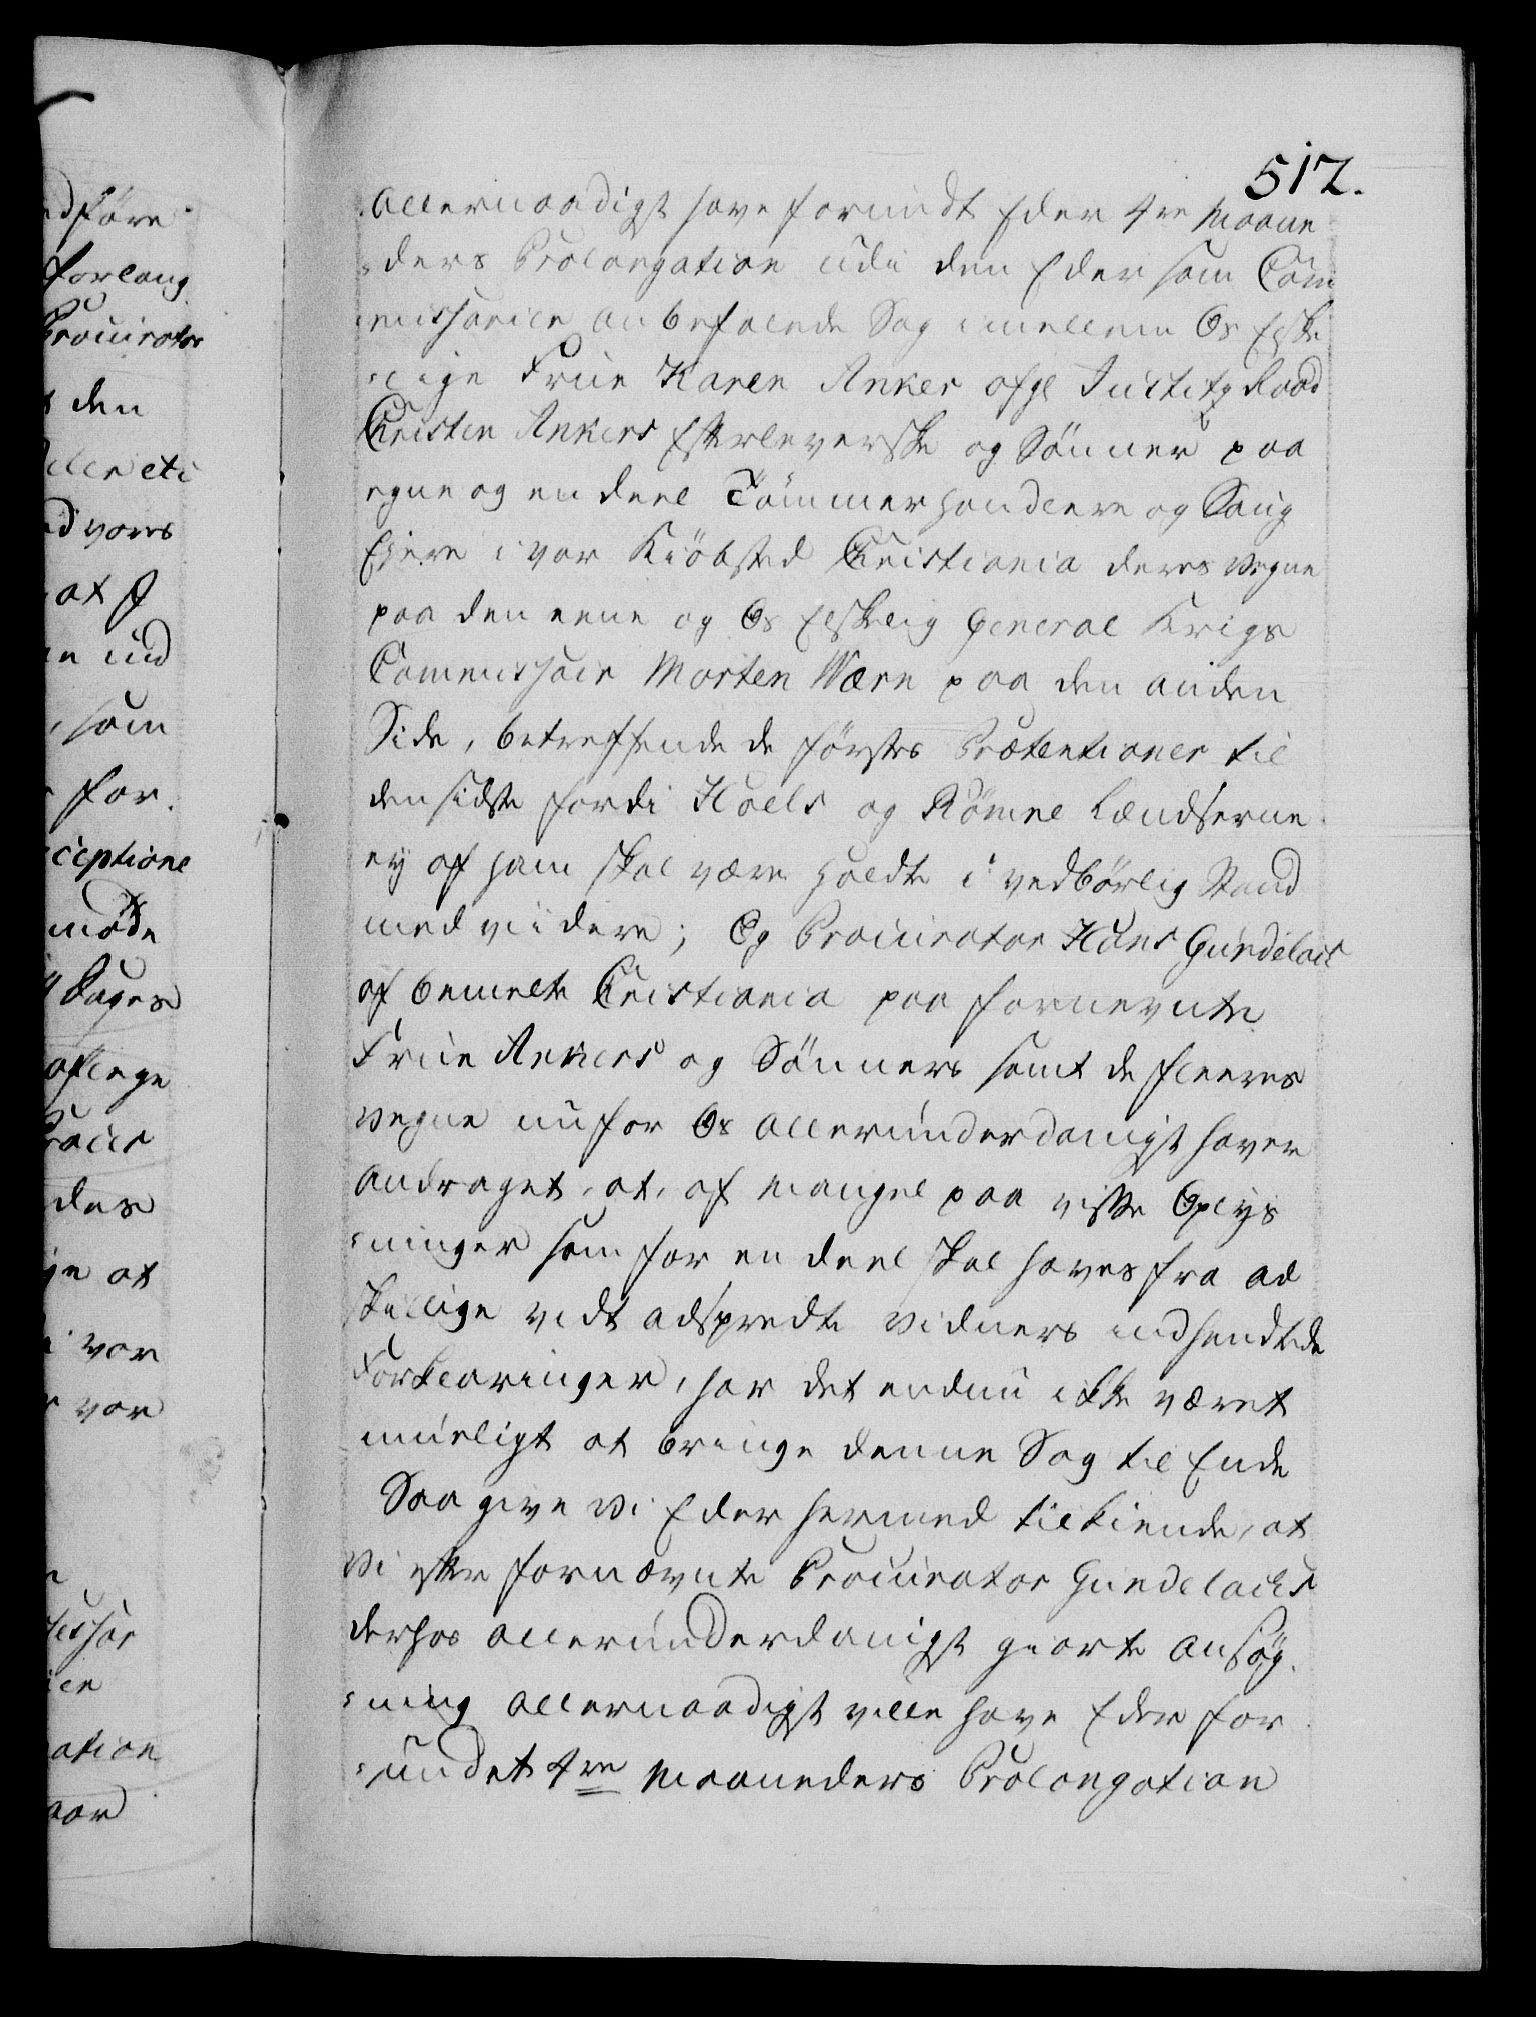 512.
Allernaadigst have forundt Eder 4re Maane
ders Prolongation udi den Eder som Com
missarier anbefalede Sag imellem Os Elske
lige Frue Karen Anker afgl Justitz Raad
Christen Ankers Efterleverske og Sönner paa
egne og en deel Tömmerhandlere og Saug
Ejere i vor Kiöbsted Christiania deres Vegne
paa den eene og Os Elskelig General Krigs
Commissair Morten Værn paa den anden
Side, betreffende de förstes Prætentioner til
den sidste fordi Hoels og Römne Lændserne
ej af ham skal være holdte i vedbörlig Stand
med viidere; Og Procurator Hans Gundelach
af bemelte Christiania paa fornevnte
Frue Ankers og Sönners samt de fleeres
Vegne nu for Os allerunderdanigst haver
andraget, at, af Mangel paa visse Oplys
ninger som for en deel skal haves fra ad
skillige vidt adspredte Vidners indhendtede
Forklaringer, har det endnu ikke været
mueligt at bringe denne Sag til Ende
Saa give Vi Eder hermed tilkiende, at
Vi efter fornævnte Procurator Gundelachs
derhos allerunderdanigst giorte Ansög
ning allernaadigst ville have Eder for
undet 4re Maaneders Prolongation